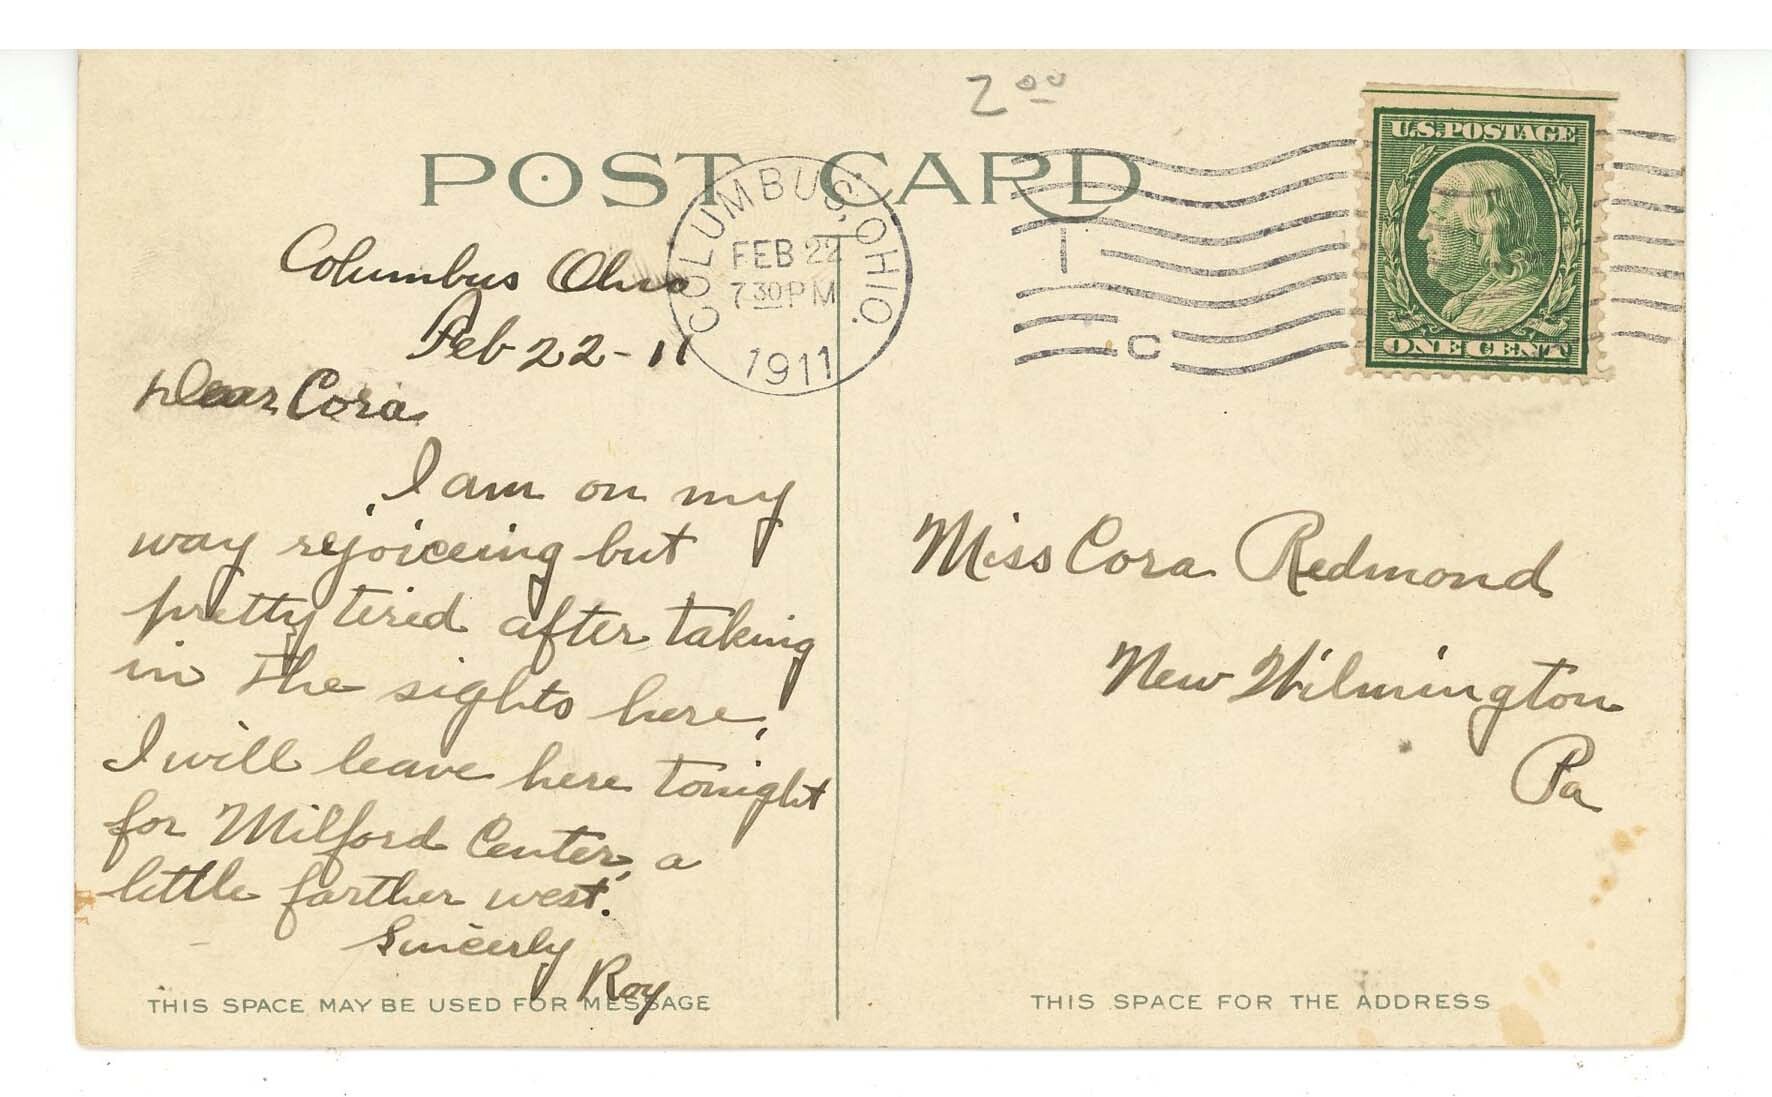 2 00
POST CARD
U.S. POSTAGE
ONE CENT
COLUMBUS, OHIO.
FEB 22
7 30 PM
1911
I
C
Columbus Ohio
Feb 22-11
Dear Cora
I am on my
way rejoiceing but
pretty tired after taking
in the sights here,
I will leave here tonight
for Milford Center, a
little farther west.
Sincerly
Roy
Miss Cora Redmond
New Wilmington
Pa
THIS SPACE MAY BE USED FOR MESSAGE
THIS SPACE FOR THE ADDRESS